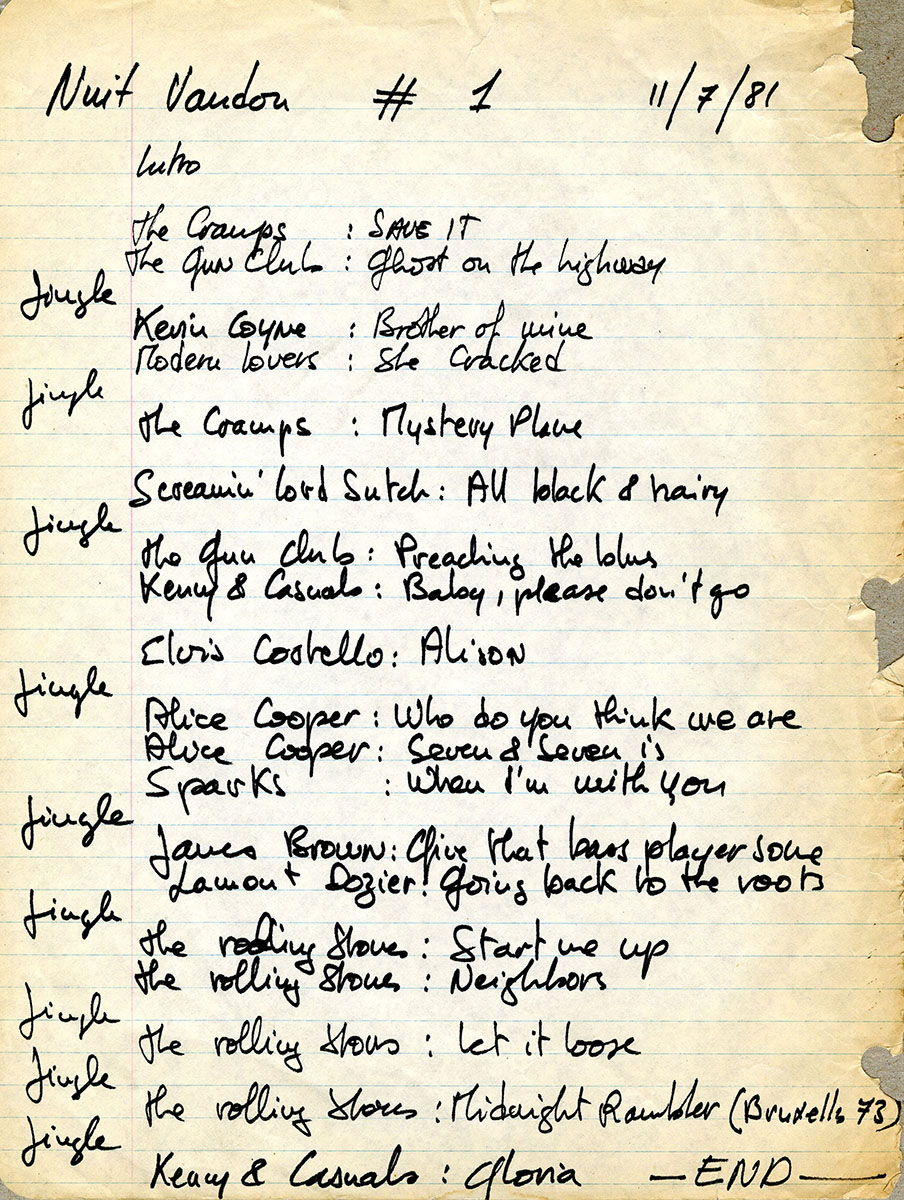 Nuit Vaudou # 1 11/7/81
Intro
The Cramps : SAVE IT
The Gun Club : Ghost on the highway
Jingle
Kevin Coyne : Brother of mine
Modern lovers : She Cracked
Jingle
the Cramps : Mystery Plane
Screamin' lord Sutch : All black & hairy
Jingle
the Gun Club : Preaching the blues
Kenny & Casuals : Baby, please don't go
Elvis Costello : Alison
Jingle
Alice Cooper : Who do you think we are
Alice Cooper : Seven & Seven is
Sparks : When I'm with you
Jingle
James Brown : Give that bass player some
Lamont Dozier : Going back to the roots
Jingle
the rolling Stones : Start me up
the rolling Stones : Neighbors
Jingle
the rolling Stones : Let it loose
Jingle
the rolling Stones : Midnight Rambler (Bruxelles 73)
Jingle
Kenny & Casuals : Gloria — END —